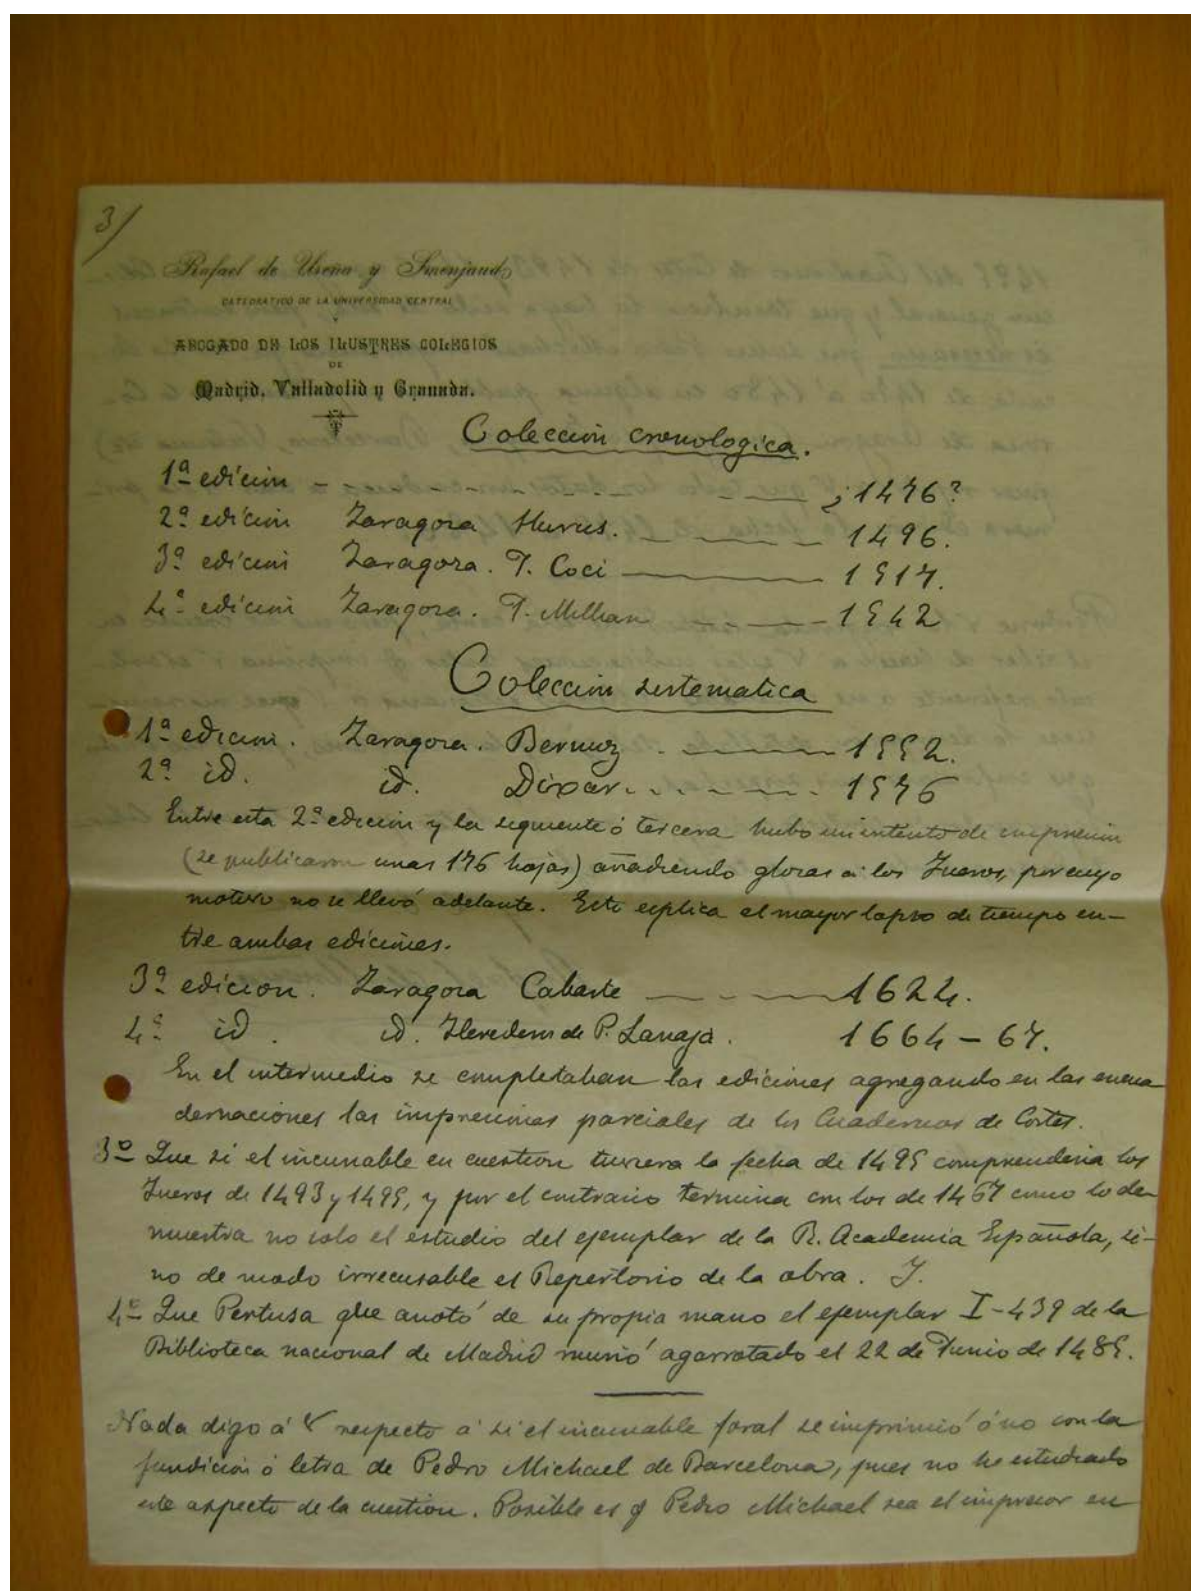 3/
Rafael de Ureña y Smenjaud
CATEDRÁTICO DE LA UNIVERSIDAD CENTRAL
Y
ABOGADO DE LOS ILUSTRES COLEGIOS
DE
Madrid, Valladolid y Granada.
Colección cronologica.
1ª edicion - - - - - - - ¿1476?
2ª edicion Zaragoza Hurus. - - - - 1496.
3ª edicion Zaragoza. J. Coci ——— 1517.
4ª edicion Zaragoza. J. Millian - - - - 1542
Colección sistematica
1ª edicion. Zaragoza. Bernuz - - - - 1552.
2ª id. id. Dixar - - - - - 1576
Entre esta 2ª edicion y la siguiente ó tercera hubo un intento de impresion
(se publicaron unas 176 hojas) añadiendo glosas a los Fueros, por cuyo
motivo no se llevó adelante. Esto esplica el mayor lapso de tiempo en-
tre ambas ediciones.
3ª edicion. Zaragoza Cabarte - - - - 1624.
4ª id. id. Herederos de P. Lanaja. 1664 - 67.
En el intermedio se completaban las ediciones agregando en las encua
dernaciones las impresiones parciales de los Cuadernos de Cortes.
3º Que si el incunable en cuestion tuviera la fecha de 1495 comprenderia los
Fueros de 1493 y 1495, y por el contrario termina con los de 1467 como lo de-
muestra no solo el estudio del ejemplar de la R. Academia Española, si-
no de modo irrecusable el Repertorio de la obra. Y.
4º Que Pertusa que anotó de su propia mano el ejemplar I-439 de la
Biblioteca nacional de Madrid murió agarrotado el 22 de Junio de 1485.
Nada digo á V respecto á si el incunable foral se imprimió ó no con la
fundicion ó letra de Pedro Michael de Barcelona, pues no he estudiado
este aspecto de la cuestion. Posible es q Pedro Michael sea el impresor en